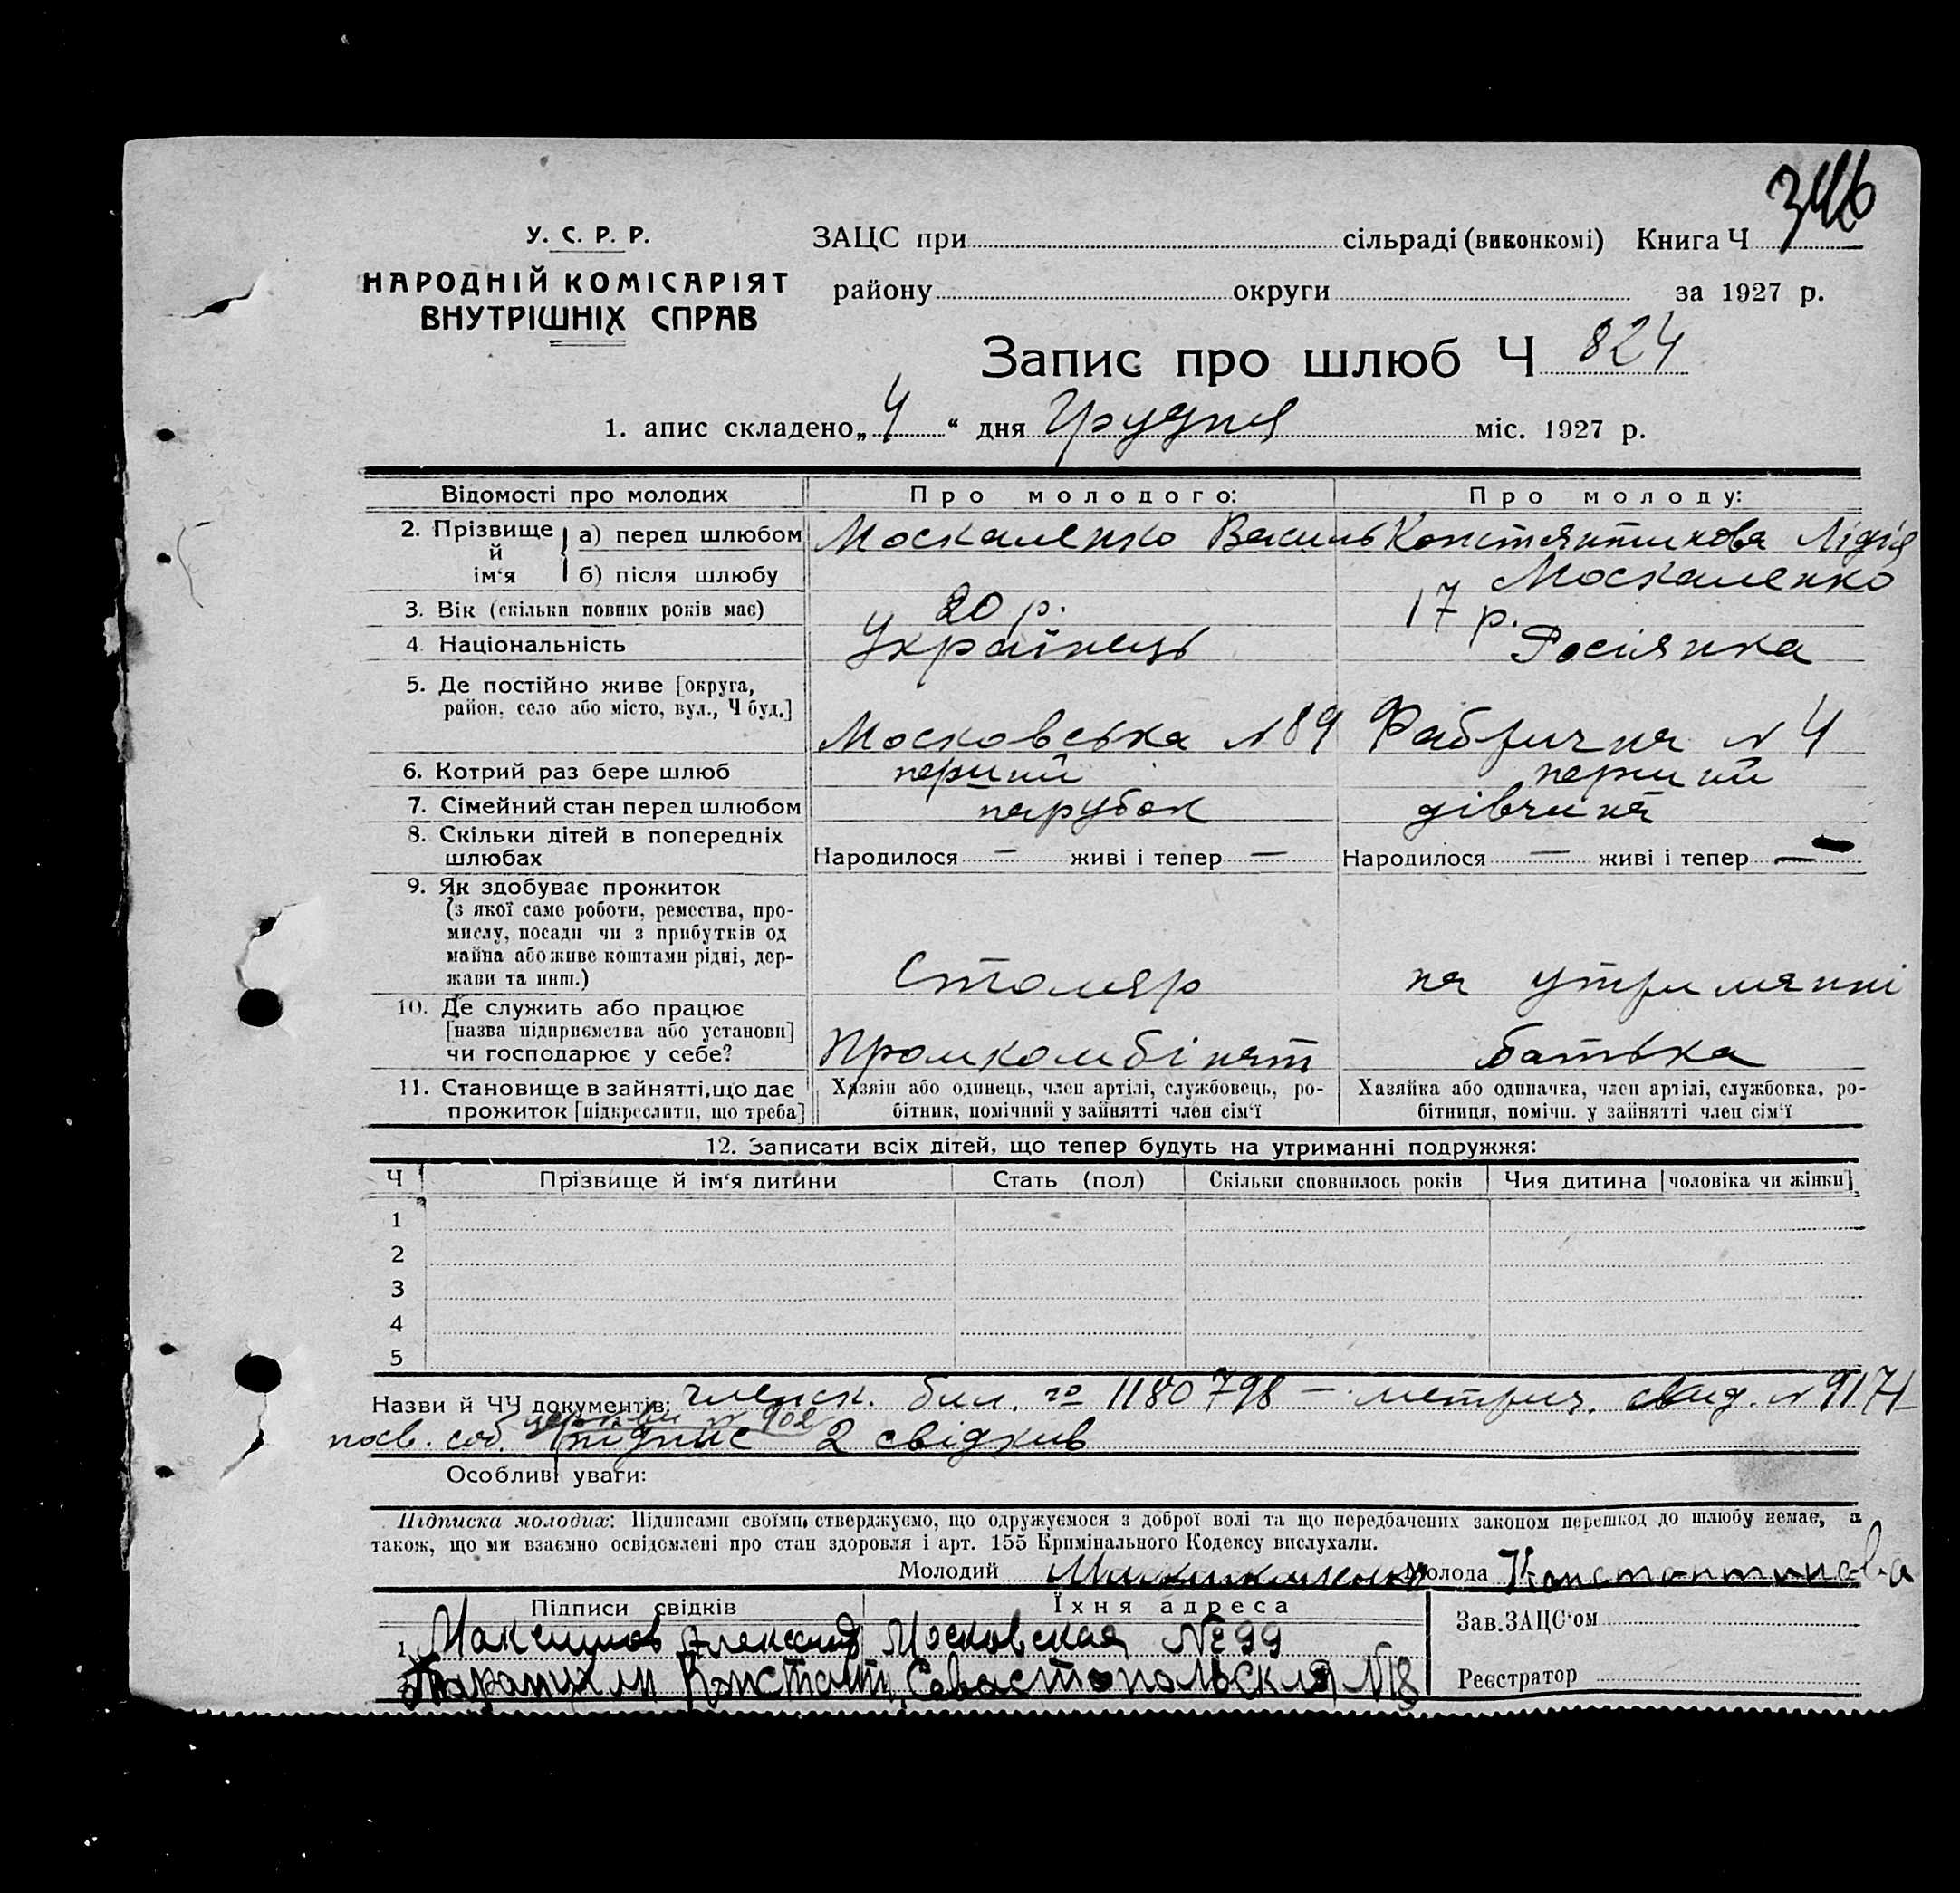 346
У. С. Р. Р.
НАРОДНІЙ КОМІСАРІЯТ
ВНУТРІШНІХ СПРАВ
ЗАЦС при сільраді (виконкомі) Книга Ч
району округи за 1927 р.
Запис про шлюб Ч 824
1. апис складено „ 4 “ дня Грудня міс. 1927 р.
Відомості про молодих Про молодого: Про молоду:
2. Прізвище й ім‘я а) перед шлюбом Москаленко Василь Константинова Лідія
б) після шлюбу Москаленко
3. Вік (скільки повних років має) 20 р. 17 р.
4. Національність Українець Росіянка
5. Де постійно живе [округа,
район, село або місто, вул., Ч буд.] Московська № 89 Фабрична № 4
6. Котрий раз бере шлюб перший перший
7. Сімейний стан перед шлюбом парубок дівчина
8. Скільки дітей в попередніх
шлюбах Народилося — живі і тепер — Народилося — живі і тепер —
9. Як здобуває прожиток
(з якої саме роботи, ремества, про-
мислу, посади чи з прибутків од
майна або живе коштами рідні, дер-
жави та инш.) Столяр на утриманні
10. Де служить або працює
[назва підприємства або установи]
чи господарює у себе? Промкомбінат батька
11. Становище в зайнятті, що дає Хазяїн або одинець, член артілі, службовець, ро- Хазяйка або одиначка, член артілі, службовка, ро-
прожиток [підкреслити, що треба] бітник, помічний у зайнятті член сім‘ї бітниця, помічн. у зайнятті член сім‘ї
12. Записати всіх дітей, що тепер будуть на утриманні подружжя:
Ч Прізвище й ім‘я дитини Стать (пол) Скільки сповнилось років Чия дитина [чоловіка чи жінки]
1
2
3
4
5
Назви й ЧЧ документів: членск. бил. 1180798 — метрич. свид. № 9174
посв. соб. церкви № 902
підпис 2 свідків
Особливі уваги:
Підписка молодих: Підписами своїми стверджуємо, що одружуємося з доброї волі та що передбачених законом перешкод до шлюбу немає, а
також, що ми взаємно освідомлені про стан здоровля і арт. 155 Кримінального Кодексу вислухали.
Молодий Молода Константинова
Підписи свідків Їхня адреса
1. Максимов Московская № 99
2. Константи Севастопольская №
Зав. ЗАЦС‘ом
Реєстратор